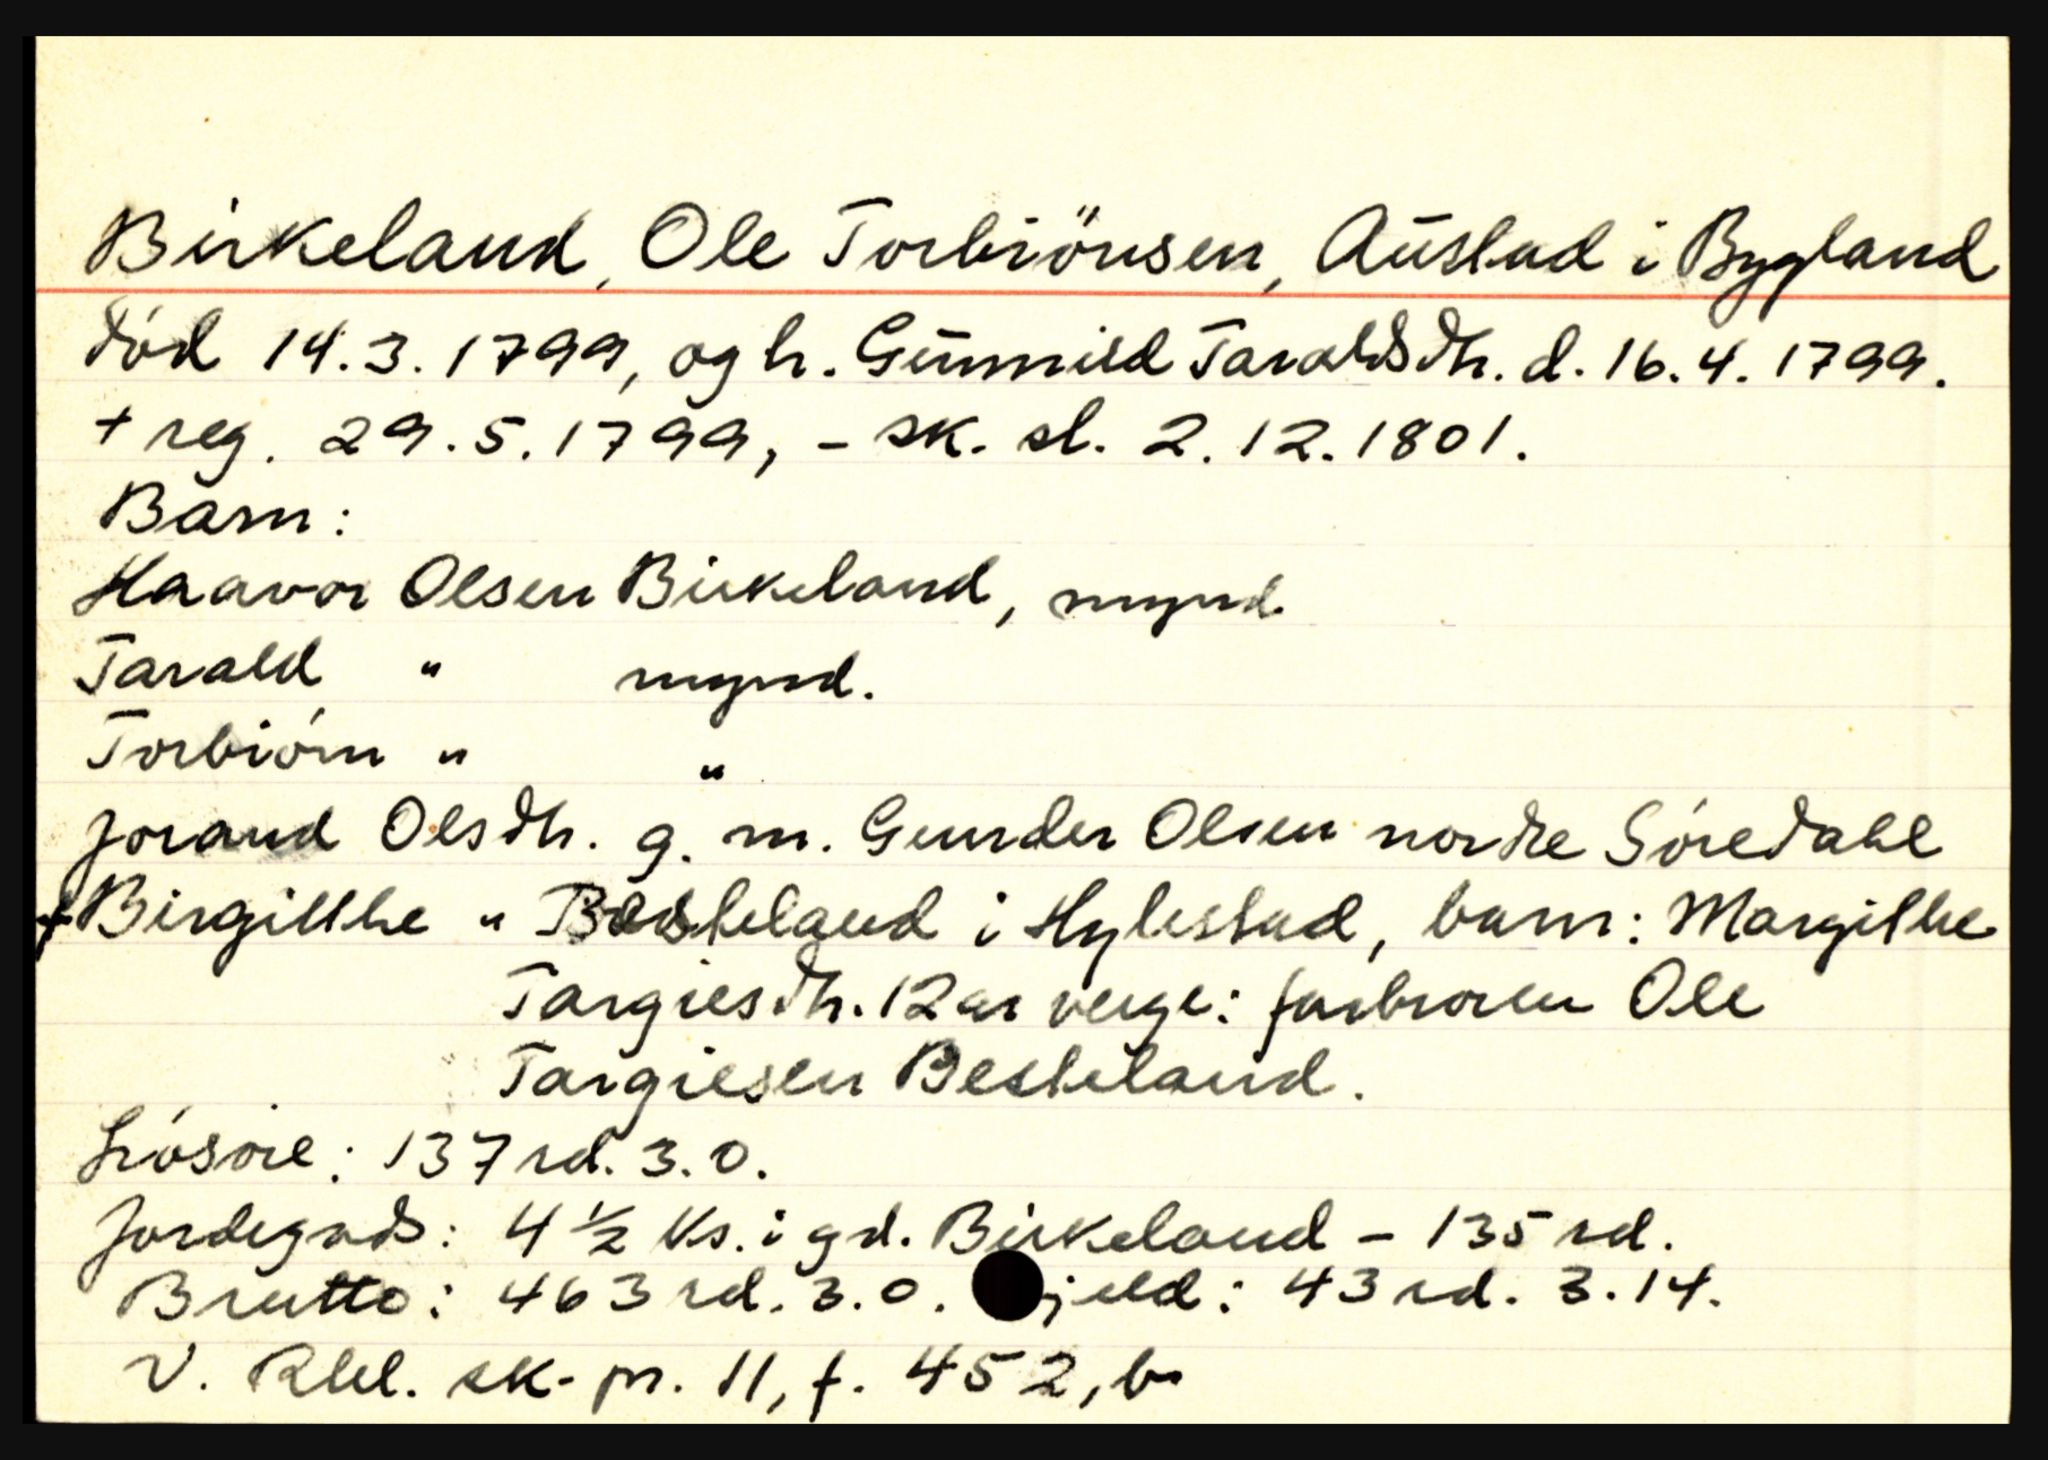 Birkeland, Ole Torbiönsen, Aūstad i Bygland
död 14.3.1799, og h. Gūnnild Taraldsdtr. d. 16.4.1799.
+ reg. 29.5.1799, - sk. sl. 2.12.1801.
Barn:
Haavor Olsen Birkeland, mynd.
Tarald " mynd.
Torbiórn " "
Jorand Olsdtr. g. m. Gunder Olsen nordre Sóredahl
+ Birgitthe " Besteland i Hylestad, barn: Margitthe
Targiesdtr. 12 år verge: farbroren Ole
Targiesen Besteland.
Lósöre: 137 rd. 3.0.
Jordegods: 4 ½ ks. i gd. Birkeland - 135 rd.
Brutto: 463 rd. 3.0. jeld: 43 rd. 3.14.
V. Rbl. sk. pr. 11, f. 452, b